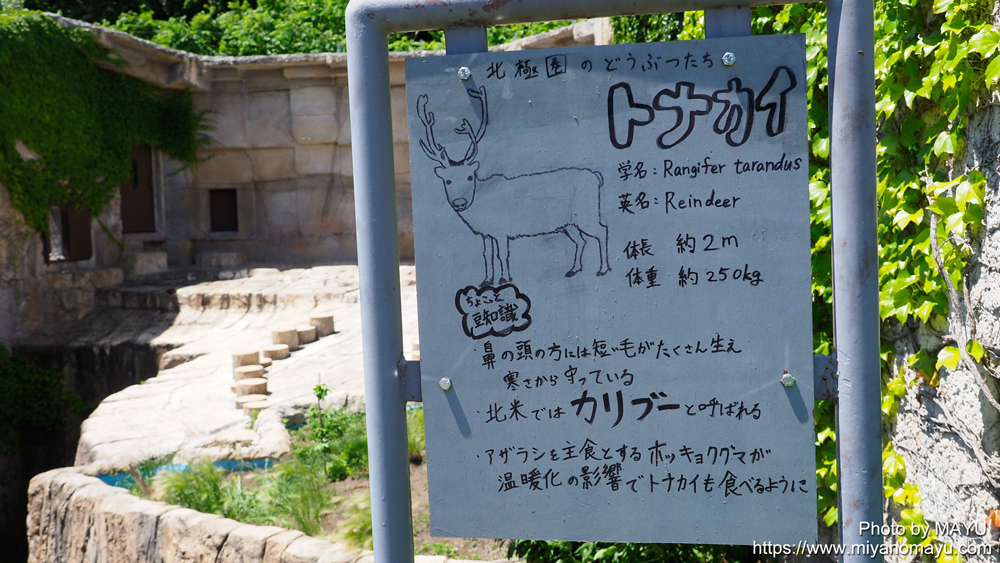 北極圏のどうぶつたち
トナカイ
学名：Rangifer tarandus
英名：Reindeer
体長 約2m
体重 約250kg
ちょこっと
豆知識
・鼻の頭の方には短い毛がたくさん生え
寒さから守っている
・北米ではカリブーと呼ばれる
・アザラシを主食とするホッキョクグマが
温暖化の影響でトナカイも食べるように
Photo by MAYU
https://www.miyanomayu.com/